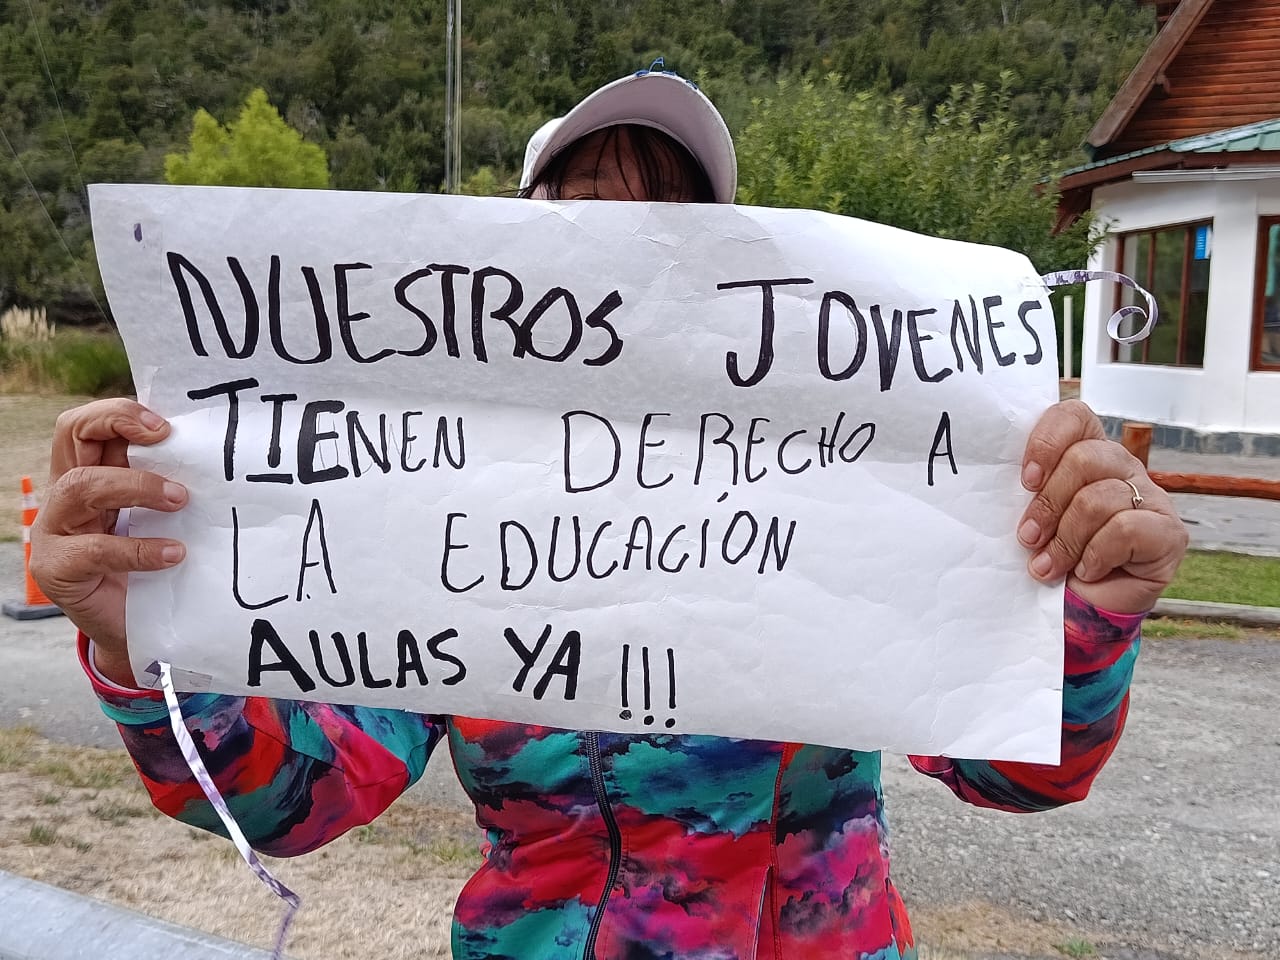 NUESTROS JOVENES
TIENEN DERECHO A
LA EDUCACIÓN
AULAS YA !!!